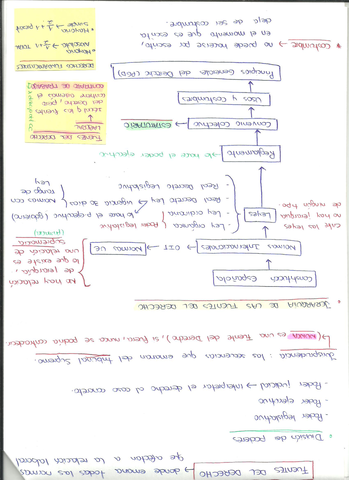 FUENTES DEL DERECHO → donde emana todas las normas
que afectan a la relación laboral
División de poderes
· Poder legislativo
· Poder ejecutivo
· Poder judicial → interpretar el derecho al caso concreto
Jurisprudencia: las sentencias que emanan del tribunal Supremo
(NUNCA es una fuente del Derecho), si fuera, nunca se podría contradecir
JERARQUÍA DE LAS FUENTES DEL DERECHO
Constitución Española
Normas Internacionales → OIT → Normas UE
No hay relación
de jerarquía,
lo que existe es
una relación de
supremacía
(primacía)
Leyes
entre las leyes
no hay jerarquía
de ningún tipo.
· Ley orgánica
· Ley ordinaria
Poder legislativo
· Real Decreto Ley → urgencia
lo hace el p. ejecutivo (gobierno)
· Real Decreto Legislativo
Normas con
rango de
Ley
Reglamento → lo hace el poder ejecutivo
Convenio Colectivo → ESTATUTARIO
Usos y Costumbres
Principios Generales del Derecho (PGD)
FUENTES DEL DERECHO
LABORAL
CONTRATO DE TRABAJO
DERECHOS
Mayoría
absoluta → ½ + 1 TOTAL
Mayoría
simple → ½ + 1 present
* Costumbre → no puede hacerse por escrito, porque
en el momento en que es escrita
deja de ser costumbre.